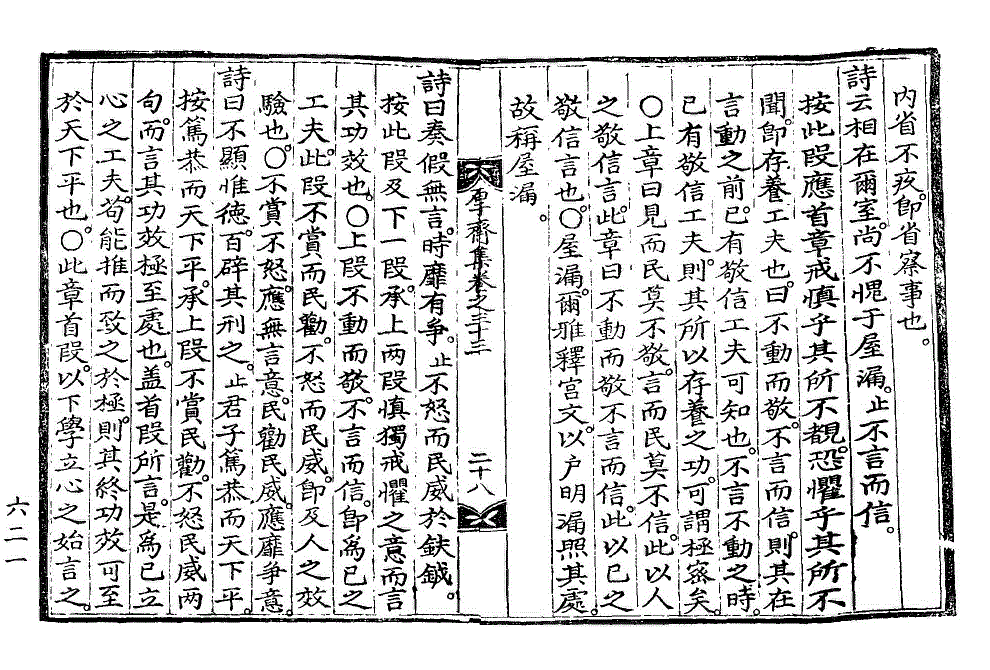 內省不疚。卽省察事也。
詩云相在爾室。尙不愧于屋漏。止不言而信。
按此段應首章戒愼乎其所不覩。恐懼乎其所不
聞。卽存養工夫也。曰不動而敬。不言而信。則其在
言動之前。已有敬信工夫可知也。不言不動之時。
已有敬信工夫。則其所以存養之功。可謂極密矣。
○上章曰見而民莫不敬。言而民莫不信。此以人
之敬信言。此章曰不動而敬不言而信。此以己之
敬信言也。○屋漏。爾雅釋宮文。以戶明漏照其處。
故稱屋漏。
厚齋集卷之三十三
二十八
詩曰奏假無言。時靡有爭。止不怒而民威於鈇鉞。
按此段及下一段。承上兩段愼獨戒懼之意而言
其功效也。○上段不動而敬。不言而信。卽爲己之
工夫。此段不賞而民勸。不怒而民威。卽及人之效
驗也。○不賞不怒。應無言意。民勸民威。應靡爭意。
詩曰不顯惟德。百辟其刑之。止君子篤恭而天下平。
按篤恭而天下平。承上段不賞民勸。不怒民威兩
句。而言其功效極至處也。盖首段所言。是爲己立
心之工夫。苟能推而致之於極。則其終功效可至
於天下平也。○此章首段。以下學立心之始言之。
六二一